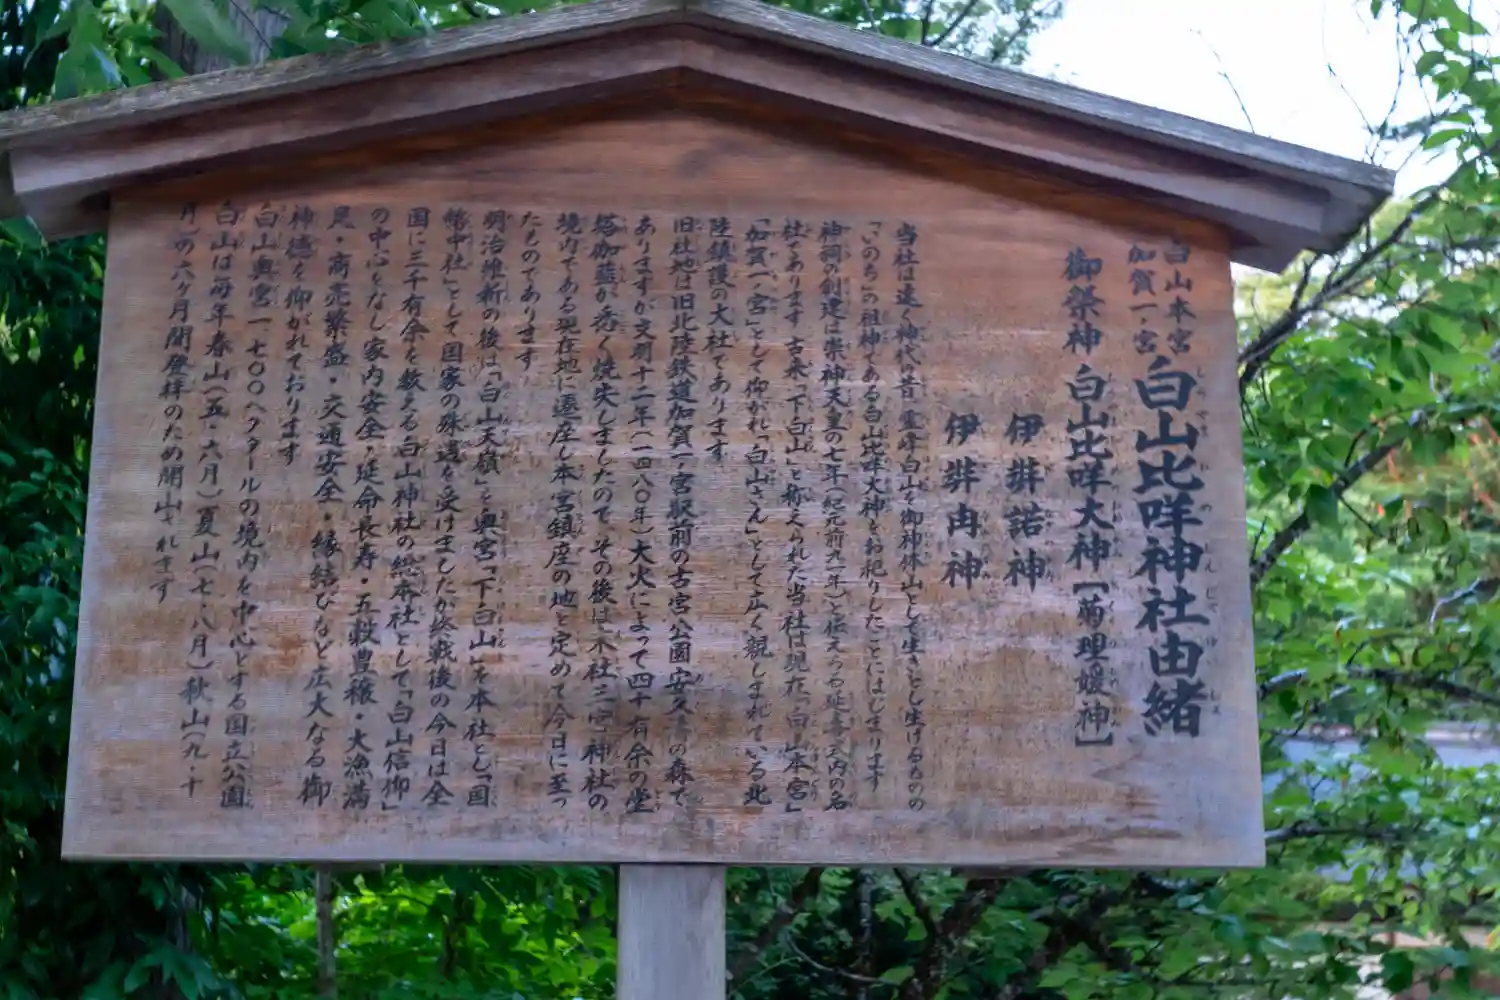 白山本宮
加賀一ノ宮
白山比咩神社由緒
御祭神 白山比咩大神[菊理媛神]
伊弉諾神
伊弉冉神
当社は遠く神代の昔霊峰白山を御神体山とし生きとし生けるものの
「いのち」の祖神である白山比咩大神をお祀りしたことにはじまります
神祠の創建は崇神天皇の七年(紀元前九一年)と伝えらる延喜式内の名
社であります 古来「下白山」と称えられた当社は現在「白山本宮」
「加賀一ノ宮」として仰がれ「白山さん」として広く親しまれている北
陸鎮護の大社であります
旧社地は旧北陸鉄道加賀一ノ宮駅前の古宮公園・安久濤の森で
ありますが文明十二年(一四八〇年)大火によって四十有余の堂
塔伽藍が悉く焼失しましたので その後は末社三宮神社の
境内である現在地に遷座し本宮鎮座の地と定めて今日に至っ
たものであります
明治維新の後は「白山天嶺」を奥宮「下白山」を本社とし「国
幣中社」として国家の殊遇を受けましたが終戦後の今日は全
国に三千有余を数える白山神社の総本社として「白山信仰」
の中心となし家内安全・延命長寿・五穀豊穣・大漁満
足・商売繁盛・交通安全・縁結びなど広大なる御
神徳を仰がれております
白山奥宮一、七〇〇ヘクタールの境内を中心とする国立公園
白山は毎年春山(五・六月)夏山(七・八月)秋山(九・十
月)の六ヶ月間登拝のため開山されます